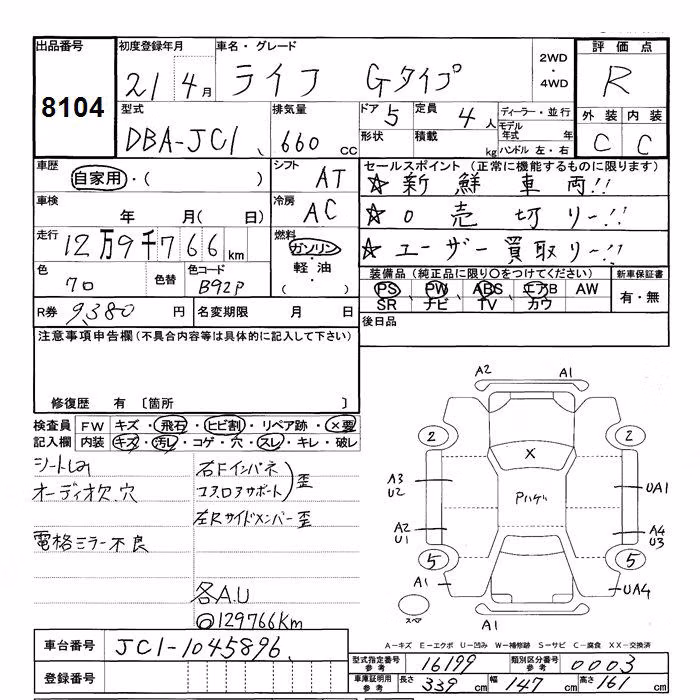 出品番号 初度登録年月 車名・グレード 2WD・4WD 評価点
8104 21 4月 ライフ Gタイプ R
型式 排気量 ドア 5 定員 4人 ディーラー・並行 外装 内装
DBA-JC1 660 CC 形状 積載 kg モデル年式 年 ハンドル 左・右 C C
車歴 自家用・( ) シフト AT セールスポイント (正常に機能するものに限ります)
☆新鮮車両!!
車検 年 月( 日) 冷房 AC ☆0売切リー!!
走行 12万9千766km 燃料 ガソリン・軽油・ ☆ユーザー買取リー!!
色 クロ 色替 色コード B92P 装備品 (純正品に限り○をつけてください) 新車保証書
PS PW ABS エアB AW 有・無
SR ナビ TV カワ
R券 9,380 円 名変期限 月 日 後日品
注意事項申告欄 (不具合内容等は具体的に記入して下さい)
修復歴 有 〔箇所 〕
検査員記入欄 FW キズ・飛石・ヒビ割・リペア跡・×要
内装 キズ・汚レ・コゲ・穴・スレ・キレ・破レ
シートしみ 右Fインパネ
オーディオ欠.穴 コアロアサポート 歪
左Rサイドメンバー歪
電格ミラー不良
各A.U
◎129766Km
A2 A1
2 2
X
A3
U2 Pハゲ UA1
A2
U1 A4
U3
5 5
A1 UA4
スペア A1
A−キズ E−エクボ U−凹み W−補修跡 S−サビ C−腐食 XX−交換済
車台番号 JC1-1045896
型式指定番号 参考 16199 類別区分番号 参考 0003
登録番号
車庫証明用 参考 長さ 339 cm 幅 147 cm 高さ 161 cm